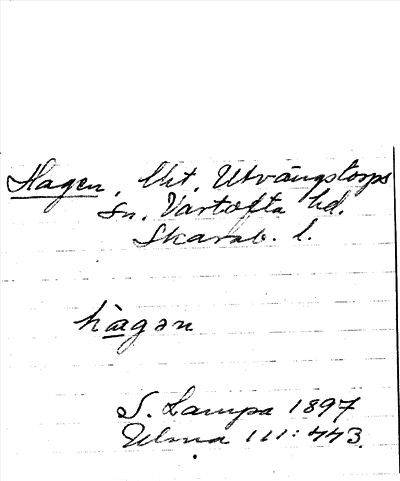 Hagen, Utvängstorps
Sn. Vartofta hd.
Skarab. l.
hàgən
S. Lampa 1897
Ulma 111:443.